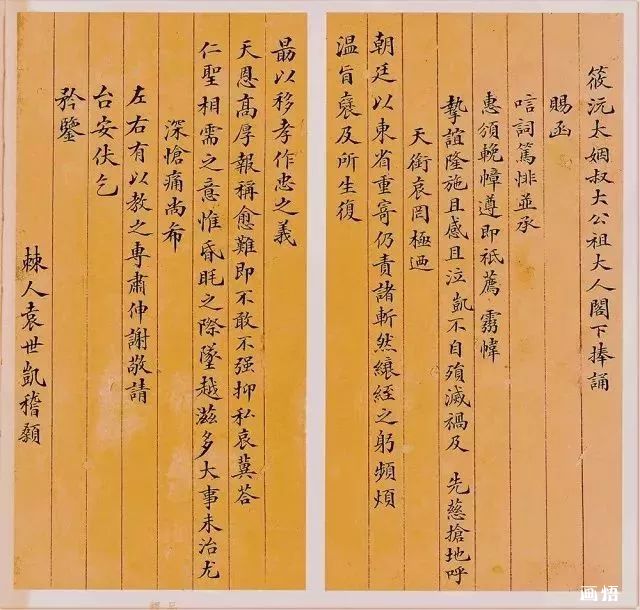 筱沅太姻叔大公祖大人閣下捧誦
賜函
唁詞篤悱並承
惠頒輓幛遵即祇薦靈幃
摯誼隆施且感且泣凱不自殞滅禍及 先慈搶地呼
天銜哀罔極迺
朝廷以東省重寄仍責諸斬然縗絰之躬頻煩
温旨襃及所生復
勗以移孝作忠之義
天恩高厚報稱愈難即不敢不强抑私哀冀荅
仁聖相需之意惟昏眊之際墜越滋多大事未治尤
深愴痛尚希
左右有以教之專肅伸謝敬請
台安伏乞
矜鑒
棘人袁世凱稽顙
画悟